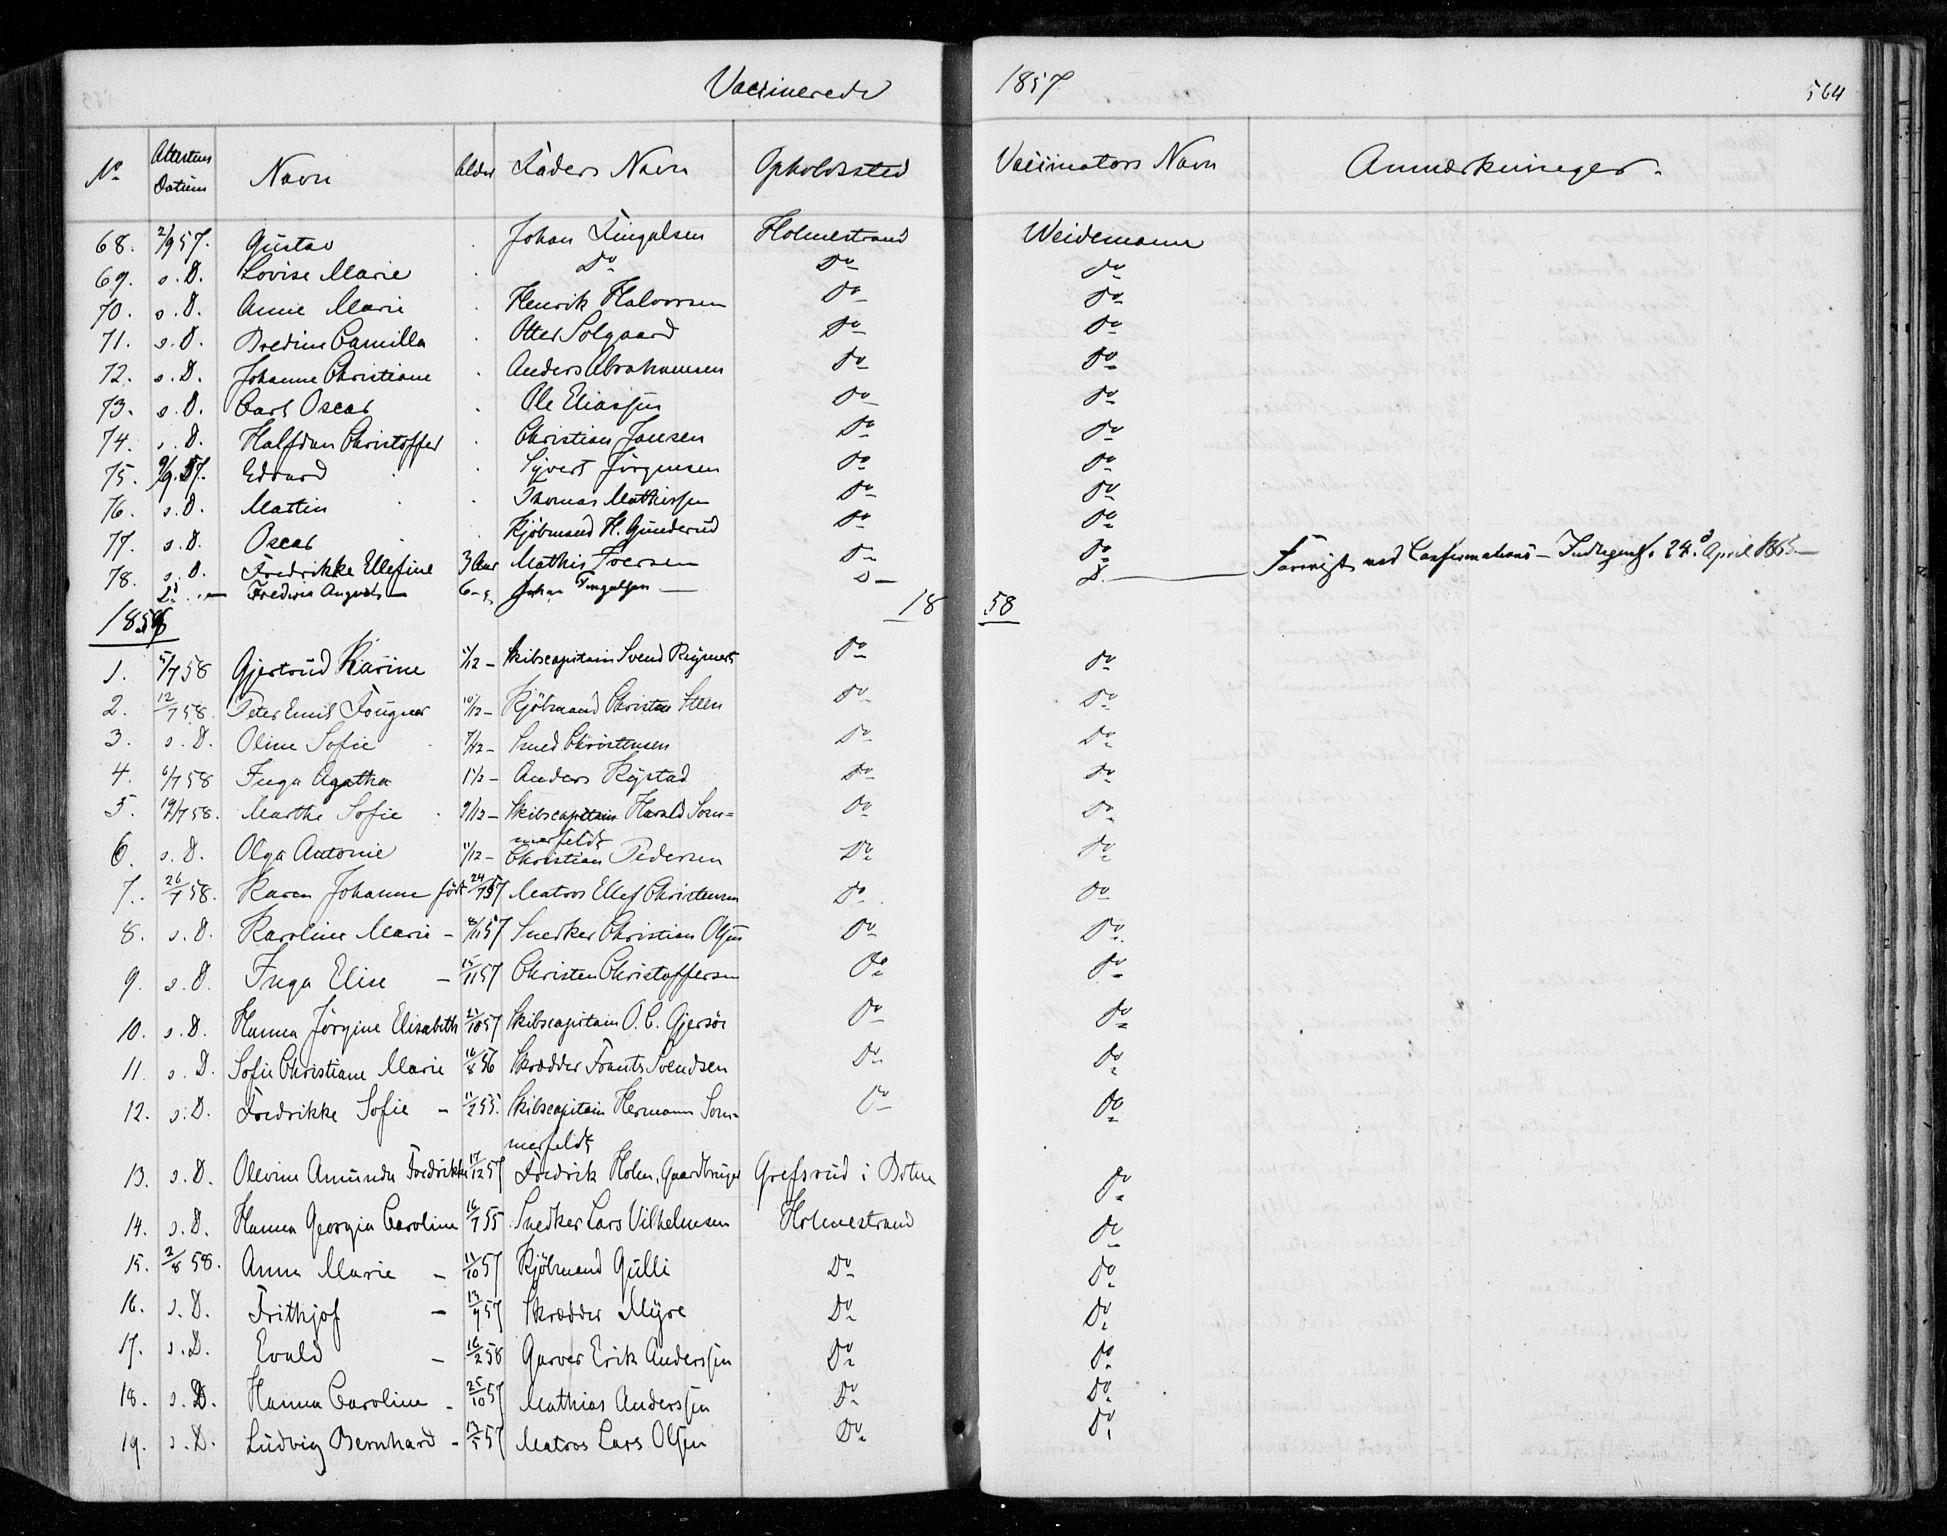 Vaccinerede 1857 564
No Attestens Datum Navn Alder Faders Navn Opholdssted Vaccinators Navn Anmærkninger.
68. 2/9 57. Gustav Johan Fingalsen Holmestrand Weidemann
69. s. D. Lovise Marie Do Do Do
70. s. D. Anne Marie Henrik Halvorsen Do Do
71. s. D. Bredine Camilla Otter Solgaard Do Do
72. s. D. Johanne Christiane Anders Abrahamsen Do Do
73. s. D. Carl Oscar Ole Eliassen Do Do
74. s. D. Halfdan Christoffer Christian Jansen Do Do
75. 9/9. 57. Edvard Syvert Jörgensen Do Do
76. s. D. Martin Thomas Mathissen Do Do
77. s. D. Oscar Kjöbmand H. Gunderud Do Do
78. s. D. Fredrikke Ellefine 3 Aar Mathis Iversen Do Do
D. Fredrik August 6 - Johan Fingalsen D D. Forevist ved Confirmations - 24. April 1865
1858 1858
1. 5/7 58 Gjertrud Karine 11/12 - Skibscapitain Svend Rynert Do Do
2. 12/7 58. Peter Emil Fougner 10/12 - Kjöbmand Christen Steen Do Do
3. s. D. Oline Sofie 7/12 - Smed Christensen Do Do
4. 6/7 58 Inga Agatha 1 1/2 - Anders Rystad Do Do
5. 19/7 58. Marthe Sofie 9/12 - Skibscapitain Harald Som=
merfeldt Do Do
6. s. D. Olga Antonie 11/12 - Christian Pedersen Do Do
7. 26/7 58. Karen Johanne födt 24/7 57 Matros Ellef Christensen Do Do
8. s. D. Karoline Marie - 8/11 57 Snedker Christian Olsen Do Do.
9. s. D Inga Elise - 15/11 57 Christen Christoffersen Do Do
10. s. D. Hanna Jörgine Elisabeth 21/10 57 Skibscapitain O. C. Gjersöe Do Do
11. s. D. Sofie Christiane Marie 16/8 56 Skrædder Frants Svendsen Do Do
12. s. D. Fredrikke Sofie - 11/2 55. Skibscapitain Hermann Som-
merfeldt Do Do
13. s. D. Olevine Amunda Fredrikke 17/12 57 Fredrik Holm, Gaardbruger Grefsrud i Botne Do
14. s. D. Hanna Georgia Caroline 16/7 55 Snedker Lars Vilhelmsen Holmestrand Do
15. 2/8 58. Anna Marie - 11/10 57 Kjöbmand Gulli Do Do
16. s. D. Frithjof - 13/9 57 Skrædder Myre Do Do
17. s. D. Evald - 16/2 58 Garver Erik Anderssen Do Do
18. s. D. Hanna Caroline - 25/10 57 Mathias Anderssen Do Do
19. s. D. Ludvig Bernhard - 13/5 57 Matros Lars Olsen Do Do